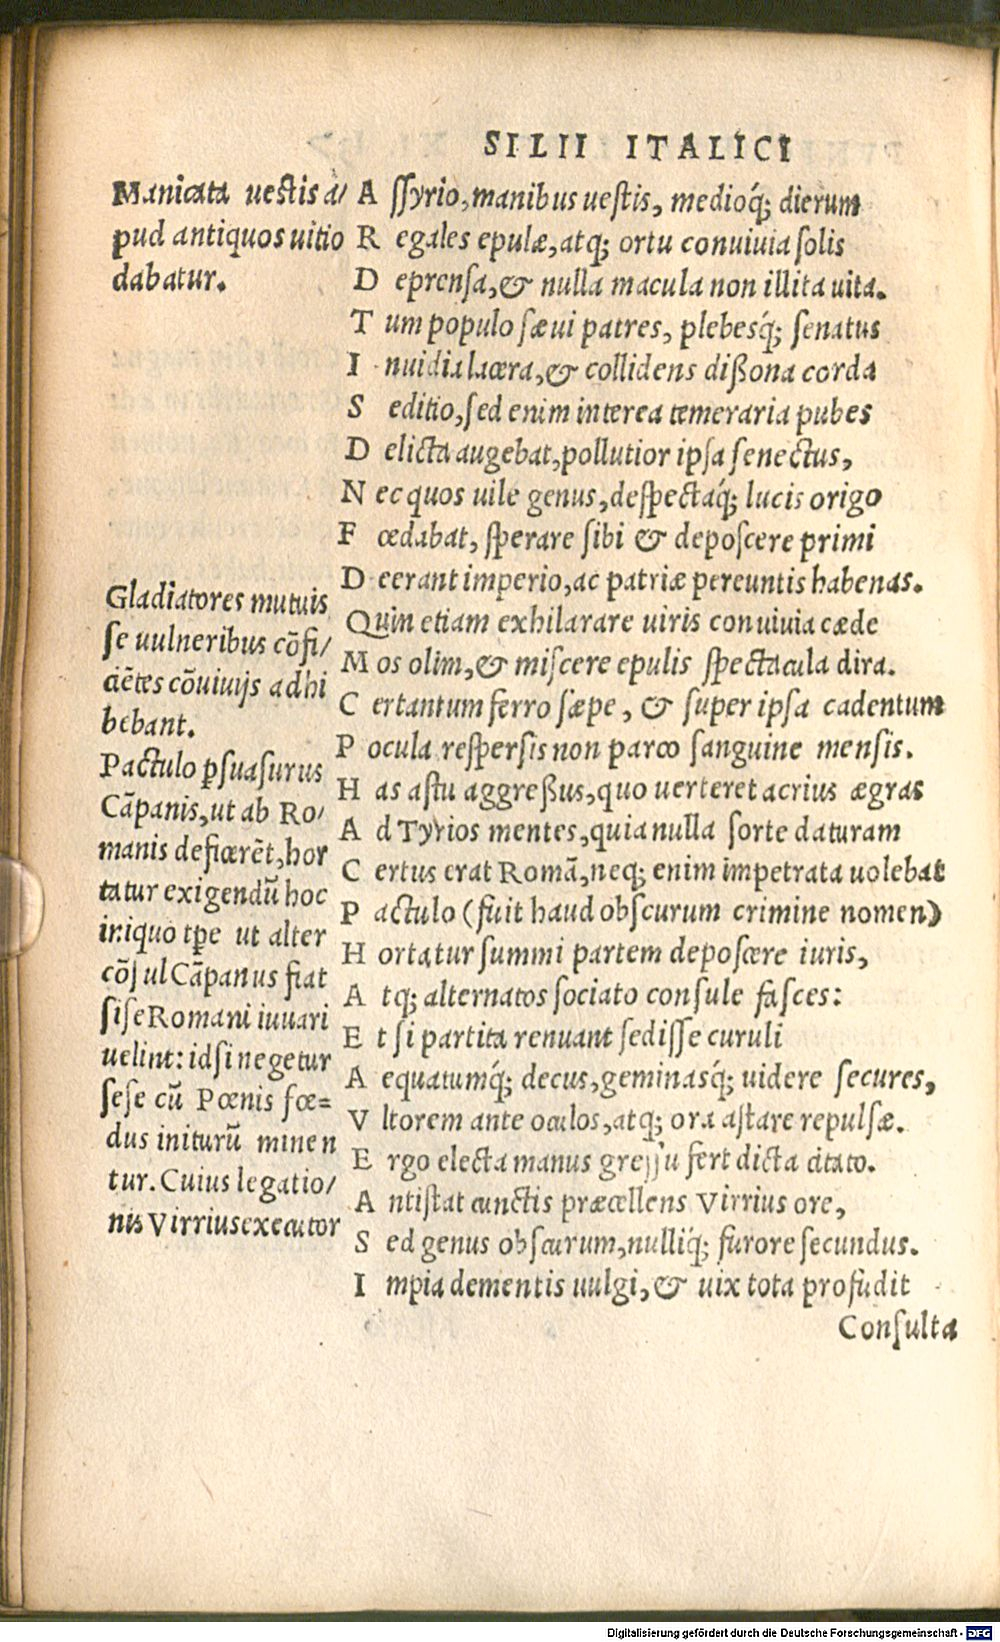 SILII ITALICI
Manicata uestis a/
pud antiquos uitio
dabatur.
Assyrio, manibus uestis, medioq́; dierum
Regales epulæ, atq; ortu conuiuia solis
Deprensa, & nulla macula non illita uita.
Tum populo sæui patres, plebesq́; senatus
Inuidia lacera, & collidens dißona corda
Seditio, sed enim interea temeraria pubes
Delicta augebat, pollutior ipsa senectus,
Nec quos uile genus, despectaq́; lucis origo
Fœdabat, sperare sibi & deposcere primi
Deerant imperio, ac patriæ pereuntis habenas.
Quin etiam exhilarare uiris conuiuia cæde
Mos olim, & miscere epulis spectacula dira.
Certantum ferro sæpe, & super ipsa cadentum
Pocula respersis non parco sanguine mensis.
Has astu aggreßus, quo uerteret acrius ægras
Ad Tyrios mentes, quia nulla sorte daturam
Certus erat Romā, neq; enim impetrata uolebat
Pactulo (fuit haud obscurum crimine nomen)
Hortatur summi partem deposcere iuris,
Atq; alternatos sociato consule fasces:
Et si partita renuant sedisse curuli
Aequatumq́; decus, geminasq́; uidere secures,
Vltorem ante oculos, atq; ora astare repulsæ.
Ergo electa manus gressu fert dicta citato.
Antistat cunctis præcellens Virrius ore,
Sed genus obscurum, nulliq́; furore secundus.
Impia dementis uulgi, & uix tota profudit
Gladiatores mutuis
se uulneribus cōfi/
ciētes cōuiuijs adhi
bebant.
Pactulo psuasurus
Cāpanis, ut ab Ro/
manis deficerēt, hor
tatur exigendū hoc
iniquo tpe ut alter
cōsul Cāpanus fiat
si se Romani iuuari
uelint: id si negetur
sese cū Pœnis fœ=
dus initurū minen
tur. Cuius legatio/
nis Virrius executor
Consulta
Digitalisierung gefördert durch die Deutsche Forschungsgemeinschaft - DFG